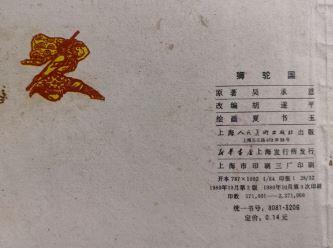 狮驼国
原著 吴承恩
改编 胡逐平
绘画 夏书玉
上海人民美术出版社出版
上海长乐路672弄33号
新华书店上海发行所发行
上海市印刷三厂印刷
开本 787×1092 1/64 印张 1 28/32
印数 171,001—2,371,000
统一书号：8081·5206
定价：0.14元